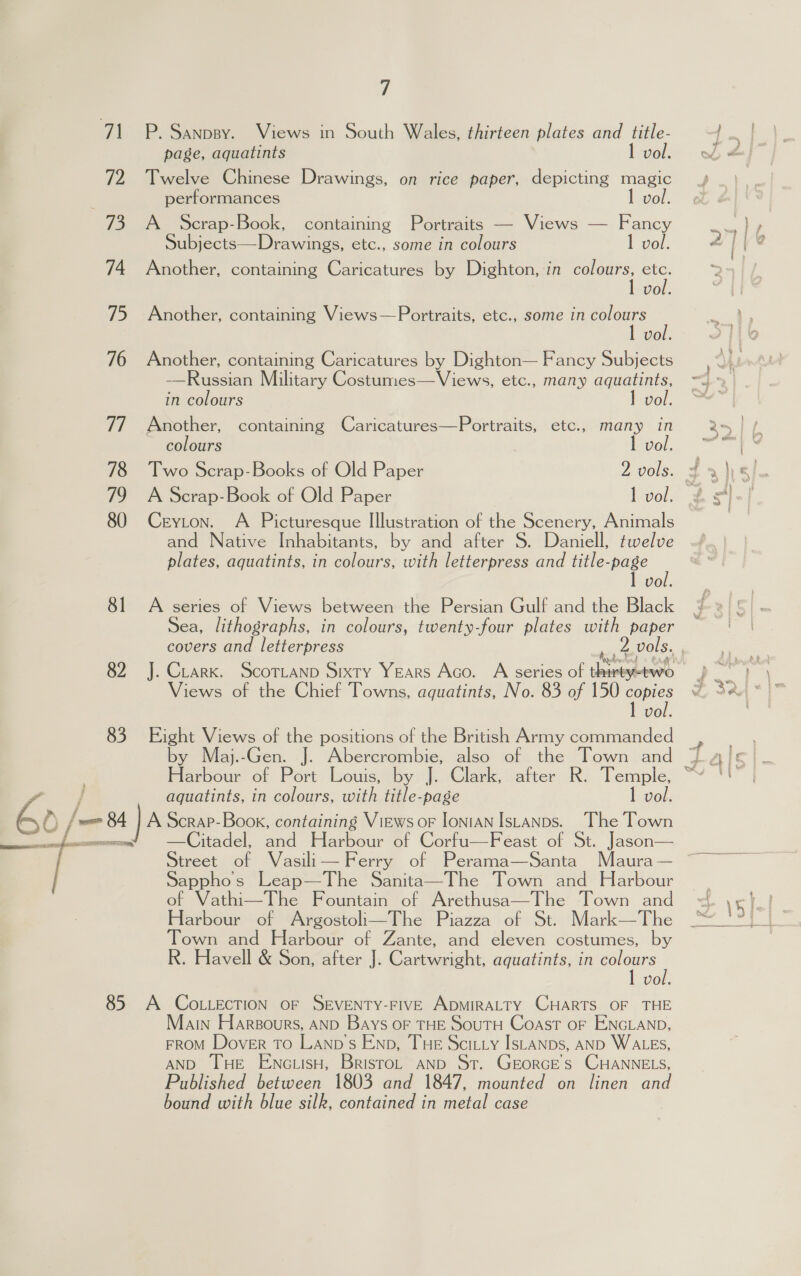 7
71 P. Sandby. Views in South Wales, thirteen plates and title-
page, aquatints 1 vol.
72 Twelve Chinese Drawings, on rice paper, depicting magic
performances 1 vol.
73 A Scrap-Book, containing Portraits — Views — Fancy
Subjects—Drawings, etc., some in colours 1 vol.
74 Another, containing Caricatures by Dighton, in colours, etc.
1 vol.
75 Another, containing Views—Portraits, etc., some in colours
1 vol.
76 Another, containing Caricatures by Dighton—Fancy Subjects
—Russian Military Costumes—Views, etc., many aquatints,
in colours 1 vol.
77 Another, containing Caricatures—Portraits, etc., many in
colours 1 vol.
78 Two Scrap-Books of Old Paper 2 vols.
79 A Scrap-Book of Old Paper 1 vol.
80 Ceylon. A Picturesque Illustration of the Scenery, Animals
and Native Inhabitants, by and after S. Daniell, twelve
plates, aquatints, in colours, with letterpress and title-page
1 vol.
81 A series of Views between the Persian Gulf and the Black
Sea, lithographs, in colours, twenty-four plates with paper
covers and letterpress 2 vols.
82 J. Clark. Scotland Sixty Years Ago. A series of thirty-two
Views of the Chief Towns, aquatints, No. 83 of 150 copies
1 vol.
83 Eight Views of the positions of the British Army commanded
by Maj.-Gen. J. Abercrombie, also of the Town and
Harbour of Port Louis, by J. Clark, after R. Temple,
aquatints, in colours, with title-page 1 vol.
60/= 84 A Scrap-Book, containing Views of Ionian Islands. The Town
—Citadel, and Harbour of Corfu—Feast of St. Jason—
Street of Vasili—Ferry of Perama—Santa Maura—
Sappho's Leap—The Sanita—The Town and Harbour
of Vathi—The Fountain of Arethusa—The Town and
Harbour of Argostoli—The Piazza of St. Mark—The
Town and Harbour of Zante, and eleven costumes, by
R. Havell & Son, after J. Cartwright, aquatints, in colours
1 vol.
85 A Collection of Seventy-five Admiralty Charts of the
Main Harbours, and Bays of the South Coast of England,
from Dover to Land's End, The Scilly Islands, and Wales,
and The English, Bristol and St. George's Channels,
Published between 1803 and 1847, mounted on linen and
bound with blue silk, contained in metal case